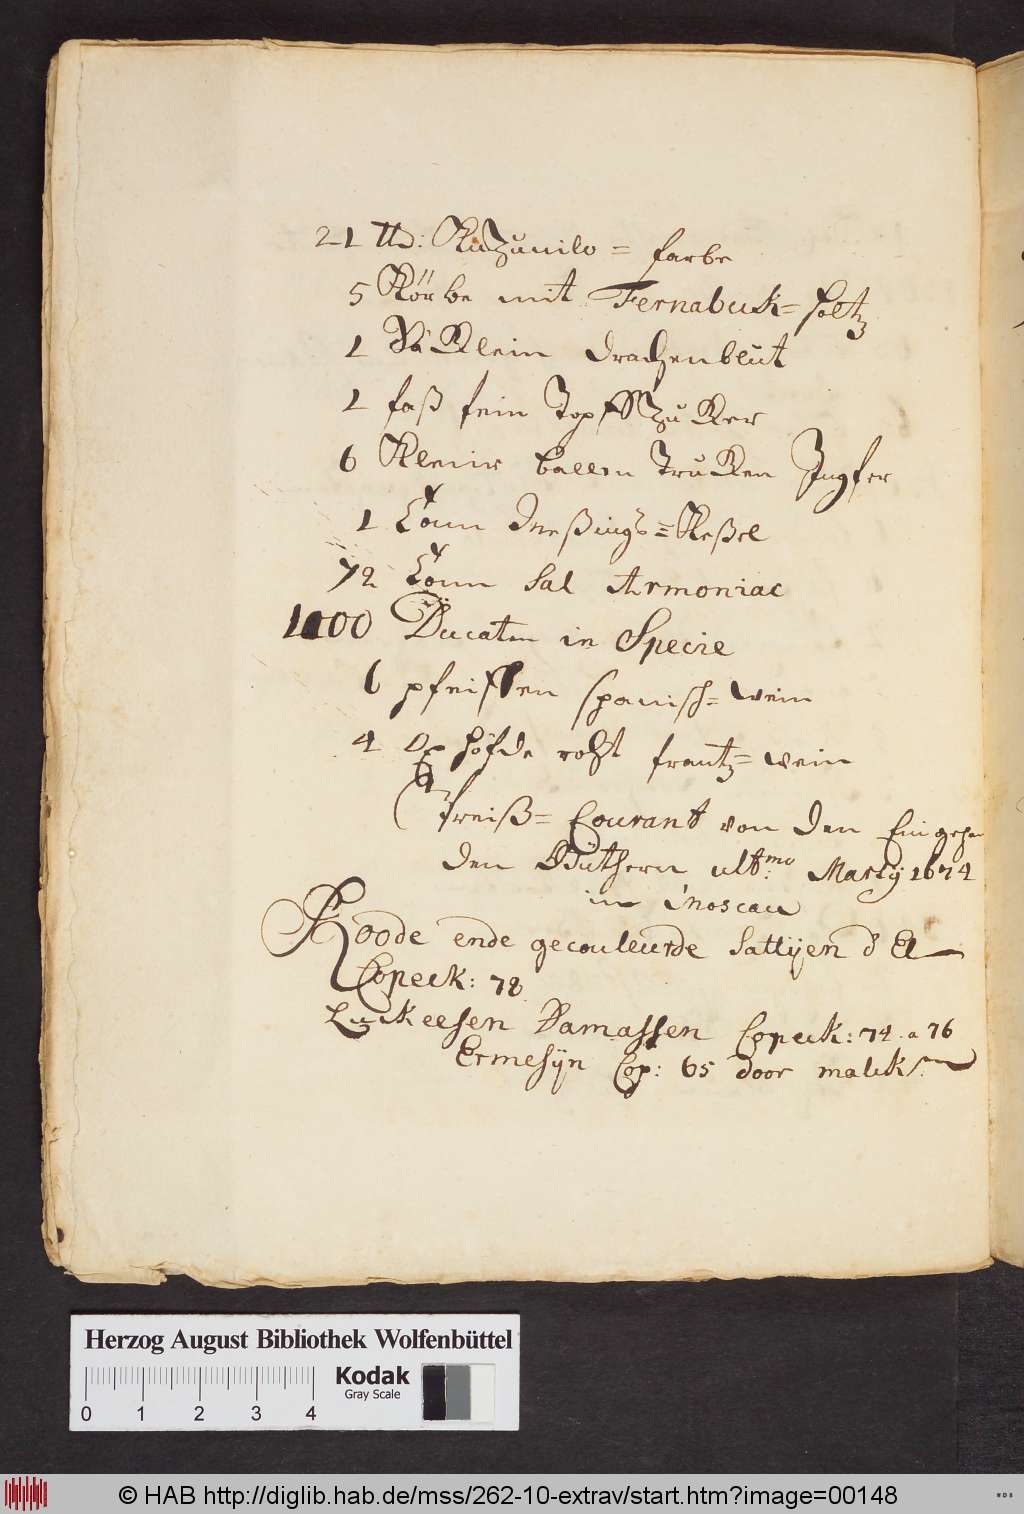 21 ℔: Kuzunilo = farbe
5 Körbe mit Fernabuk= holtz
1 Säklein drachenblut
1 faß fein Topffzuker
6 Kleine ballen truken Ingfer
1 Tonn Meßings= Keßel
72 Tonn Sal Armoniac
1000 Ducaten in Specie
6 pfeiffen spanisch= wein
4 Oxhöfde roht frantz= wein
Preiß= Courant von den Eingehen
den Güthern ult:mo Martij 1674
in Moscau
Roode ende gecouleurde Sattijen d' El
Copeck: 78
Luckeesen Damassen Copeck: 74. a 76
Ermesijn Cop: 65 door malck
Herzog August Bibliothek Wolfenbüttel
Kodak
Gray Scale
0 1 2 3 4
© HAB http://diglib.hab.de/mss/262-10-extrav/start.htm?image=00148